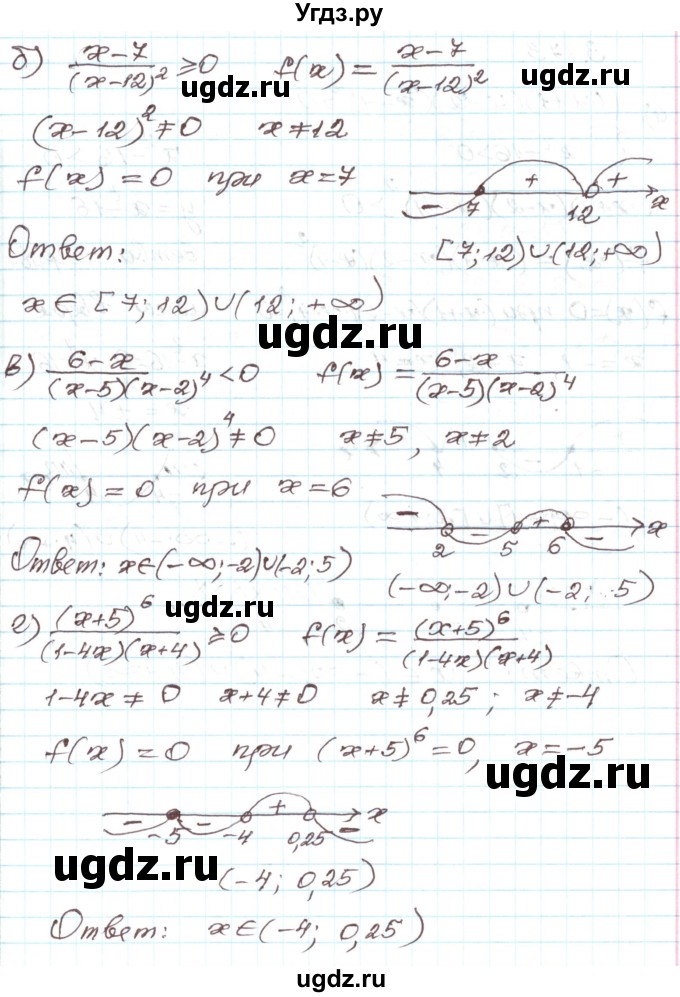 Угдз.ру
б) (x-7)/(x-12)² ⩾0 f(x) = (x-7)/(x-12)²
ugdz.ru ugdz.ru
(x-12)²≠0 x≠12
f(x) = 0 при x=7
− 7 + 12 + x
Ответ: [7;12)∪(12;+∞)
x∈[7;12)∪(12;+∞)
ugdz.ru
в) (6-x)/((x-5)(x-2)⁴) <0 f(x) = (6-x)/((x-5)(x-2)⁴)
(x-5)(x-2)⁴≠0 x≠5, x≠2
f(x) = 0 при x=6
− 2 − 5 + 6 − x
Ответ: x∈(-∞;-2)∪(-2;5) (-∞;-2)∪(-2; 5)
ugdz.ru
г) (x+5)⁶/((1-4x)(x+4)) ⩾0 f(x) = (x+5)⁶/((1-4x)(x+4))
1-4x≠0 x+4≠0 x≠0,25; x≠-4
f(x) = 0 при (x+5)⁶=0, x=-5
ugdz.ru
− -5 − -4 + 0,25 − x
ugdz.ru
(-4; 0,25)
ugdz.ru
Ответ: x∈(-4; 0,25)
ugdz.ru